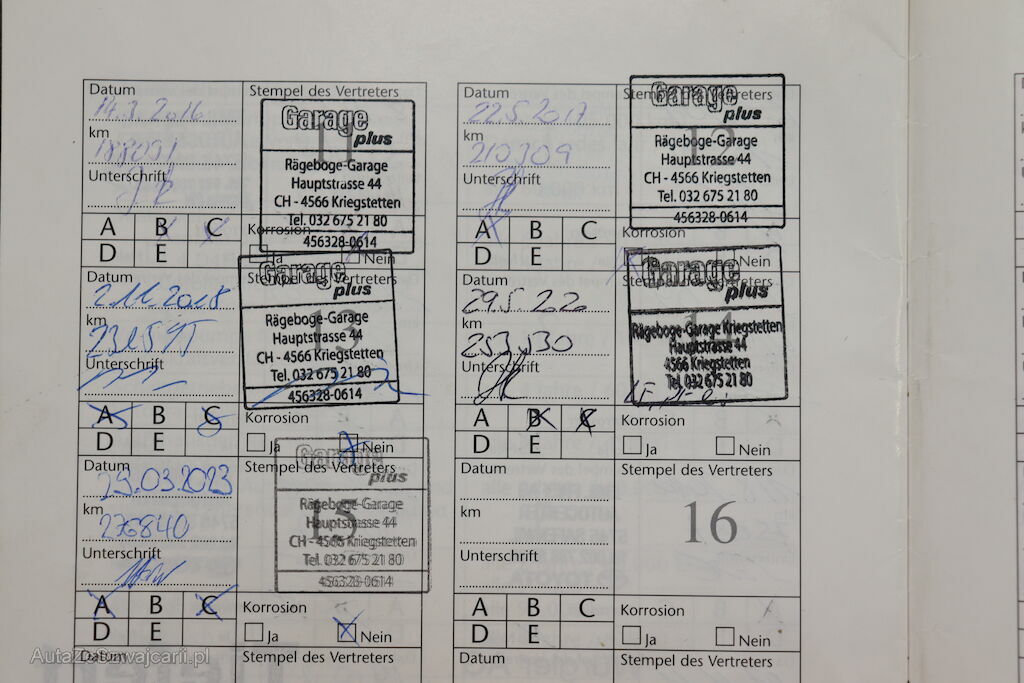 Datum
Stempel des Vertreters
14.3.2016
Garage
plus
km
11
Rägeboge-Garage
Hauptstrasse 44
Unterschrift
CH - 4566 Kriegstetten
Tel. 032 675 21 80
456328-0614
A B C
D E
Korrosion
Ja Nein
Datum
Stempel des Vertreters
22.5.2017
Garage
plus
km
210309
12
Rägeboge-Garage
Hauptstrasse 44
Unterschrift
CH - 4566 Kriegstetten
Tel. 032 675 21 80
456328-0614
A B C
D E
Korrosion
Nein
Datum
Stempel des Vertreters
2.11.2018
Garage
plus
km
231595
13
Rägeboge-Garage
Hauptstrasse 44
Unterschrift
CH - 4566 Kriegstetten
Tel. 032 675 21 80
456328-0614
A B C
D E
Korrosion
Ja Nein
Datum
Stempel des Vertreters
29.5.22
Garage
plus
km
253530
14
Rägeboge-Garage Kriegstetten
Hauptstrasse 44
4566 Kriegstetten
Unterschrift
Tel. 032 675 21 80
A B C
D E
Korrosion
Ja Nein
Datum
Stempel des Vertreters
29.03.2023
Garage
plus
km
276840
15
Rägeboge-Garage
Hauptstrasse 44
CH - 4566 Kriegstetten
Unterschrift
Tel. 032 675 21 80
456328-0614
A B C
D E
Korrosion
Ja Nein
Datum
Stempel des Vertreters
km
16
Unterschrift
A B C
D E
Korrosion
Ja Nein
Datum
Stempel des Vertreters
Datum
Stempel des Vertreters
AutaZeSzwajcarii.pl